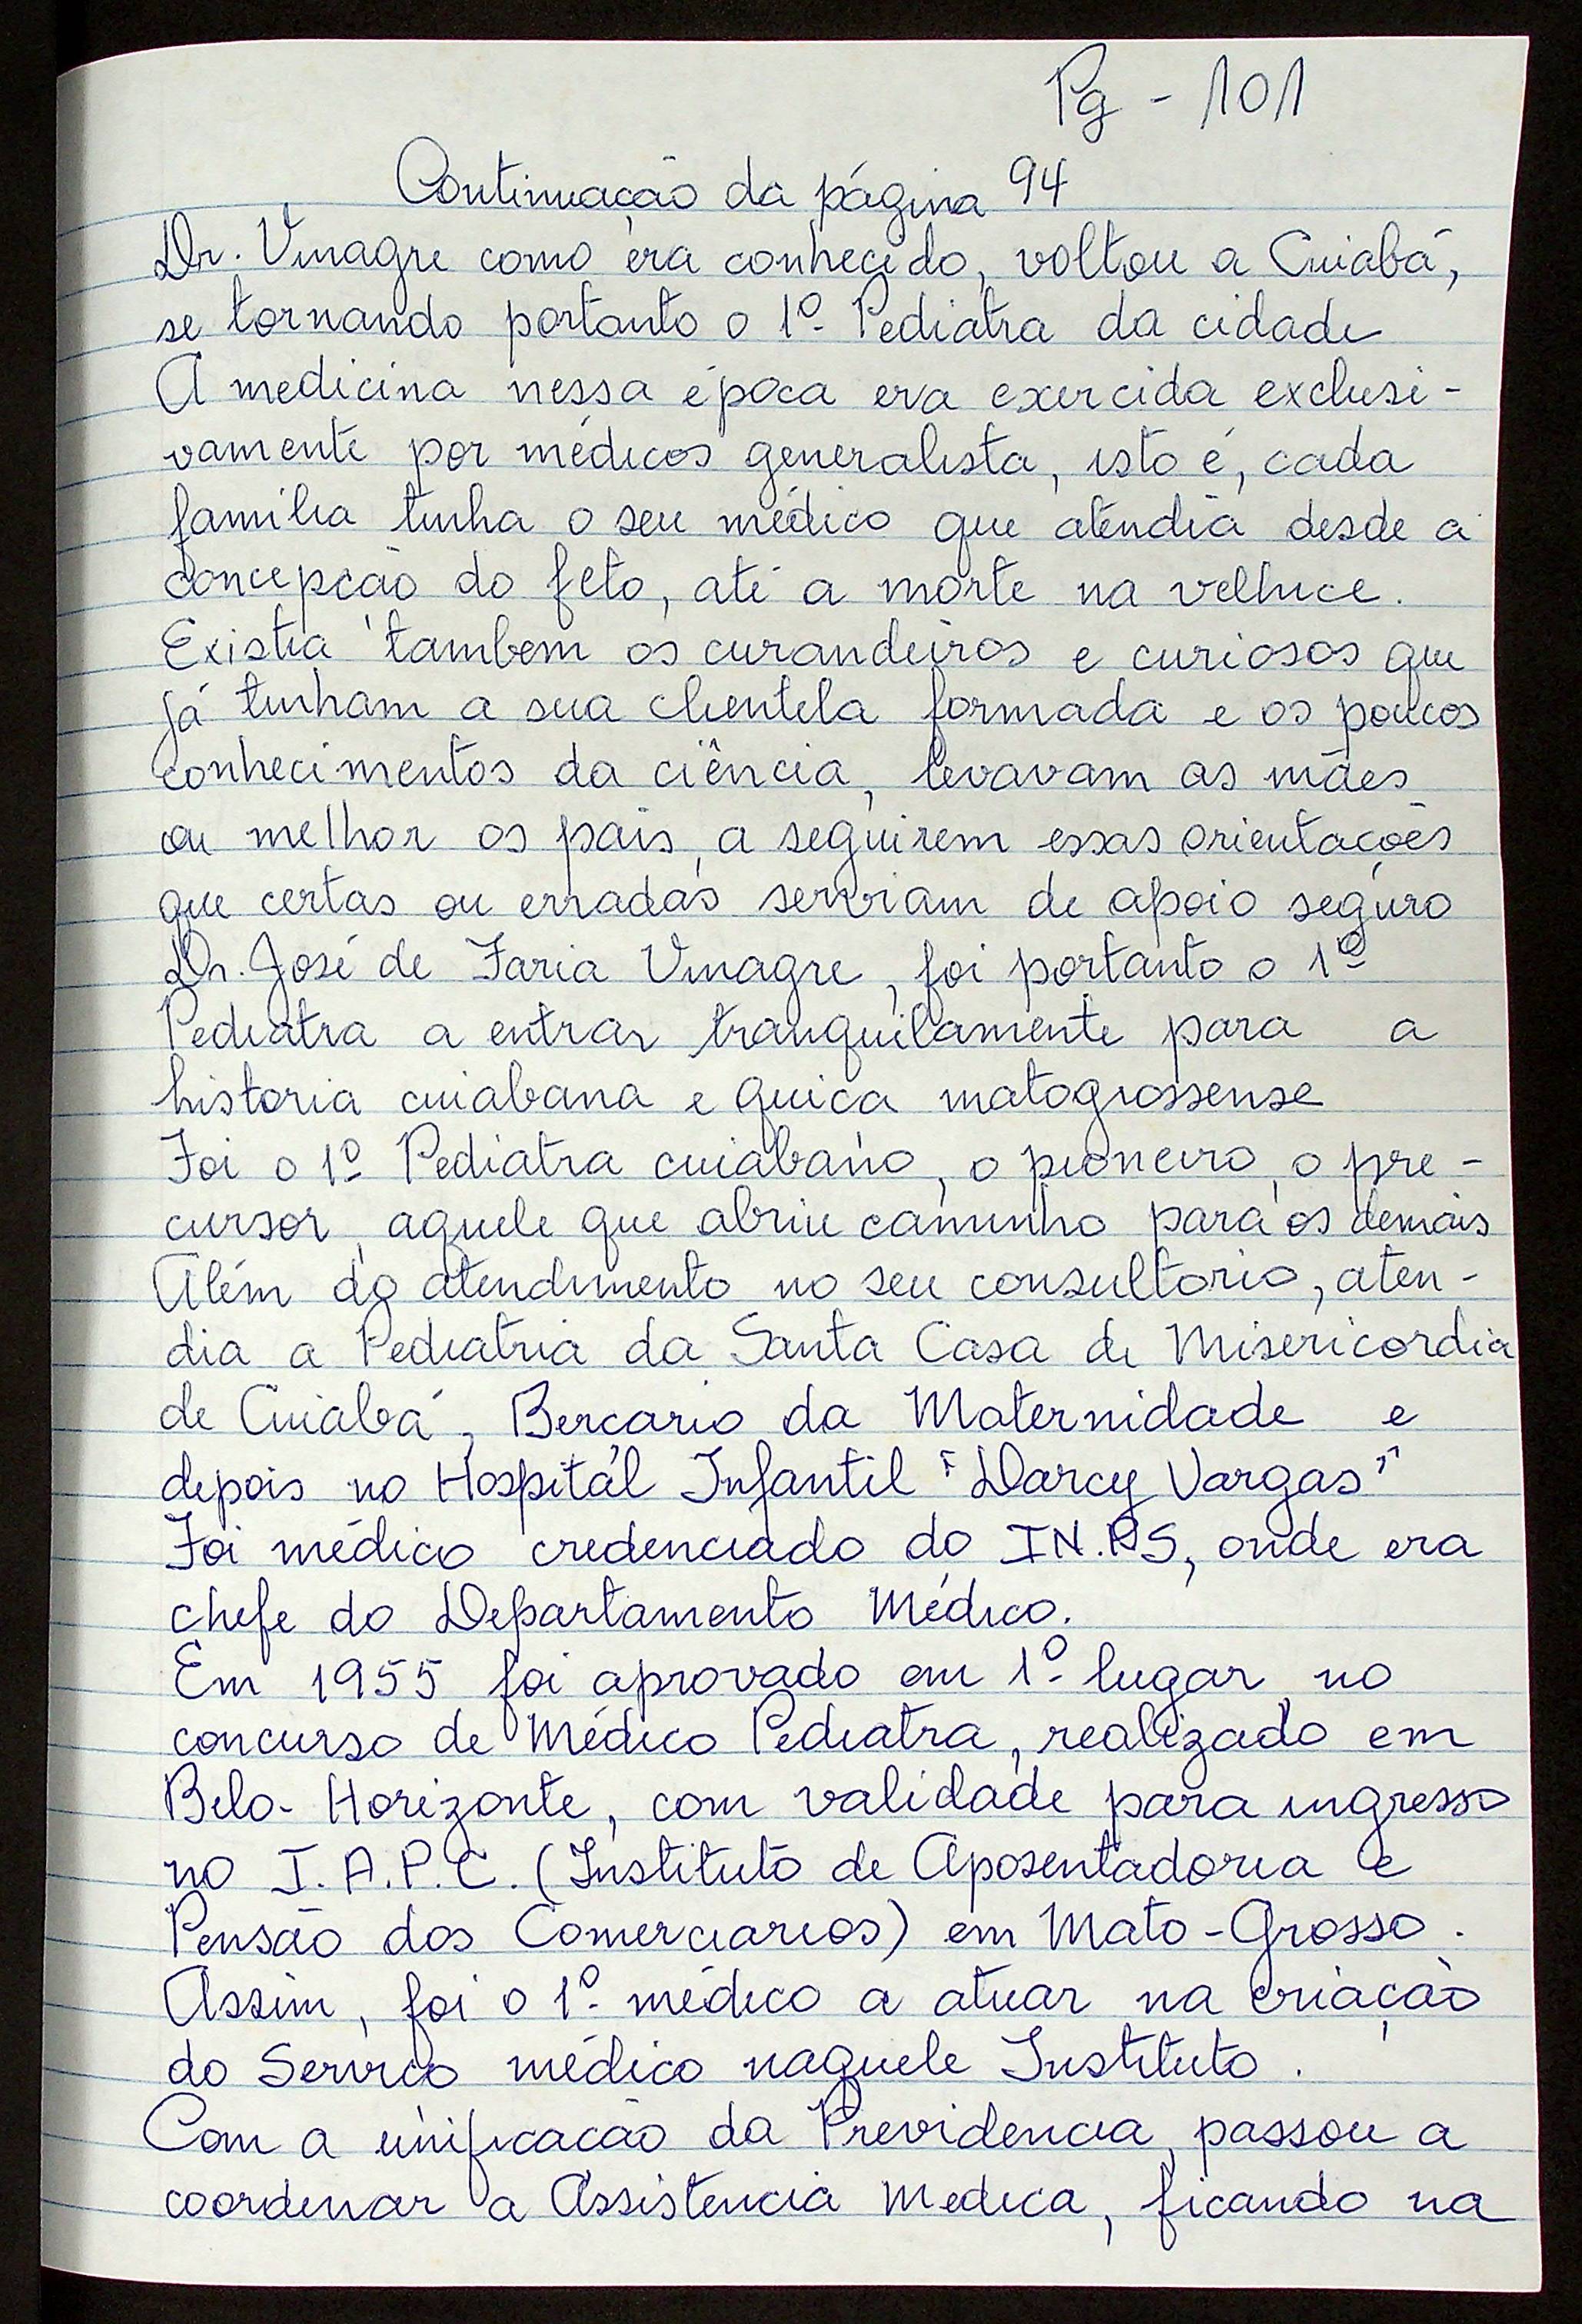 Pg - 101
Continuação da página 94
Dr. Vinagre como era conhecido, voltou a Cuiabá,
se tornando portanto o 1º Pediatra da cidade
A medicina nessa época era exercida exclusi-
vamente por médicos generalista, isto é, cada
família tinha o seu médico que atendia desde a
concepção do feto, até a morte na velhice.
Existia tambem os curandeiros e curiosos que
já tinham a sua clientela formada e os poucos
conhecimentos da ciência, levavam as mães
ou melhor os pais, a seguirem essas orientações
que certas ou erradas serviam de apoio seguro
Dr. José de Faria Vinagre, foi portanto o 1º
Pediatra a entrar tranquilamente para a
historia cuiabana e quiça matogrossense
Foi o 1º Pediatra cuiabano, o pioneiro, o pre-
cursor, aquele que abriu caminho para os demais
Além do atendimento no seu consultorio, aten-
dia a Pediatria da Santa Casa de Misericordia
de Cuiabá, Bercario da Maternidade e
depois no Hospital Infantil "Darcy Vargas"
Foi médico credenciado do IN.PS, onde era
chefe do Departamento Médico.
Em 1955 foi aprovado em 1º lugar, no
concurso de Médico Pediatra, realizado em
Belo-Horizonte, com validade para ingresso
no I.A.P.C. (Instituto de Aposentadoria e
Pensão dos Comerciarios) em Mato-Grosso.
Assim, foi o 1º médico a atuar na criação
do Servico médico naquele Instituto.
Com a unificacão da Previdencia, passou a
coordenar a Assistencia Medica, ficando na